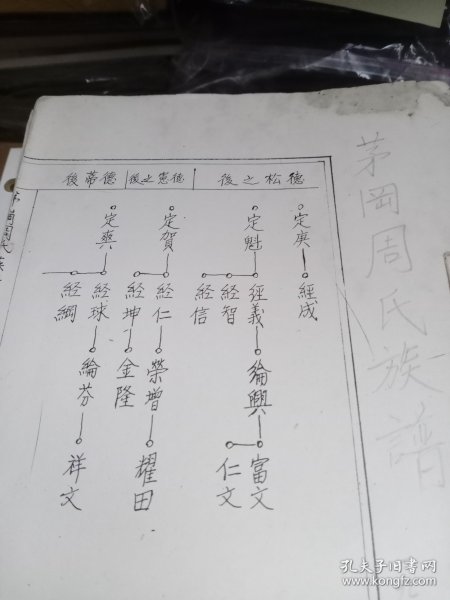 茅岡周氏族譜
德松之後
德惠之後
德蒂後
定庚
經成
定魁
經義
經智
经信
綸興
富文
仁文
定賀
经仁
經坤
榮增
金隆
耀田
定興
经球
経綱
綸芬
祥文
孔夫子旧书网
www.kongfz.com